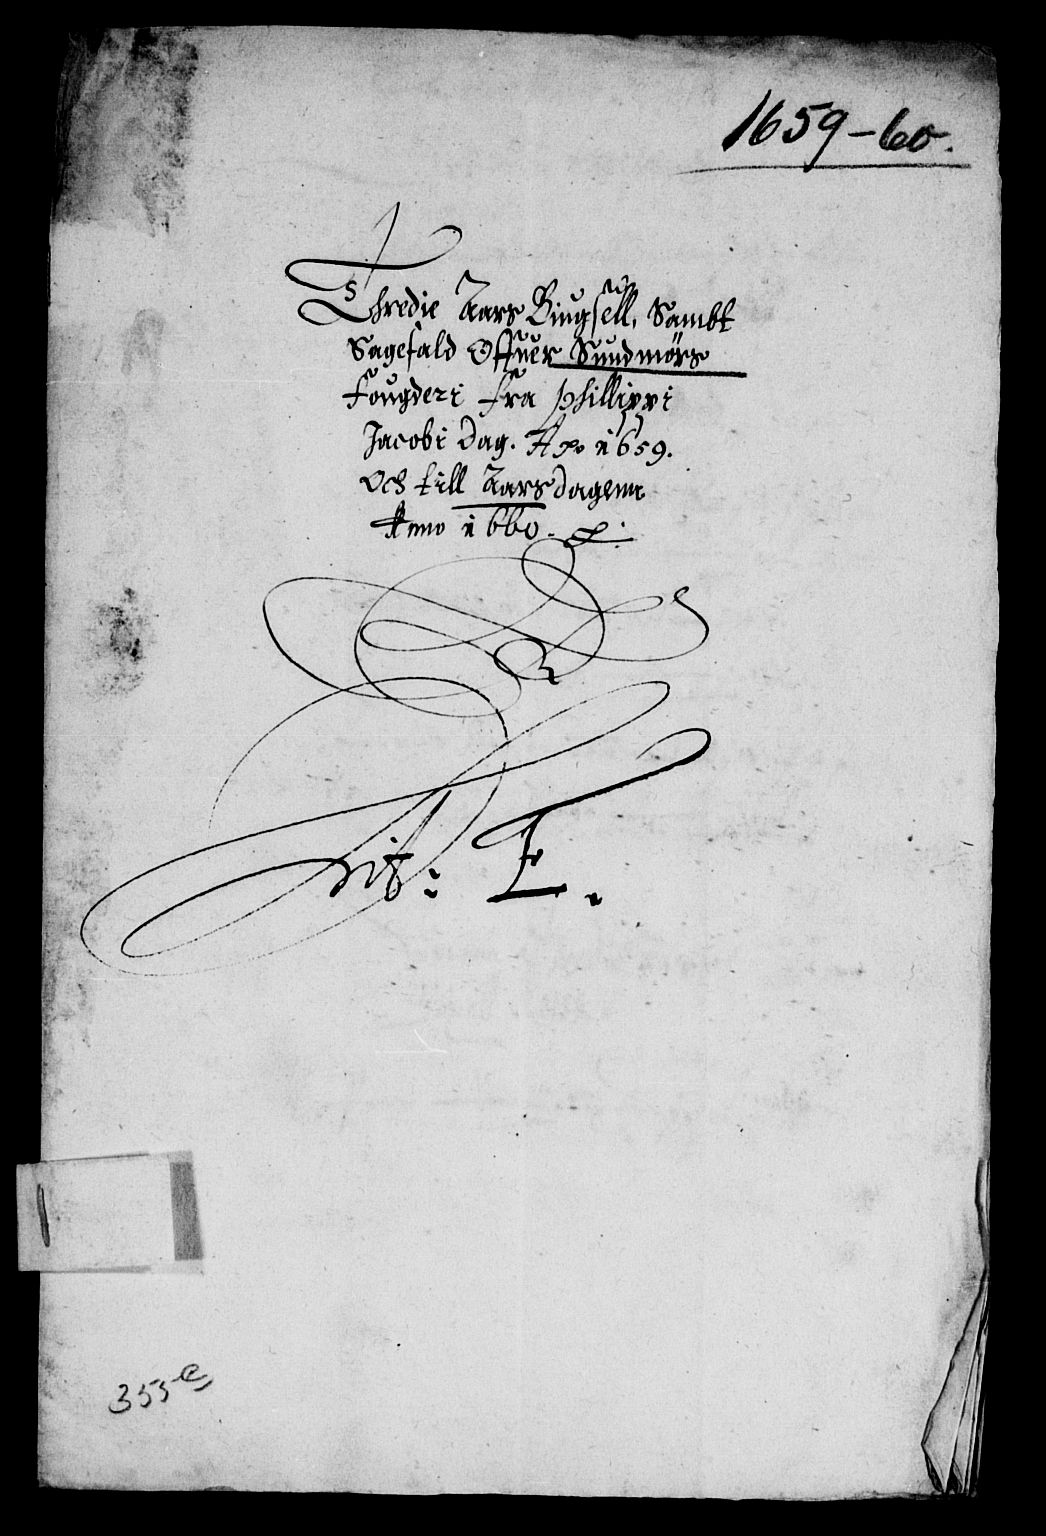 1659-60.
Thredie Aars Bÿugsell, Sambt
Sagefald Offuer Sundmørs
fougderi fra Phillippi
Jacobi Dag. Aō 1659.
Och till Aarsdagenn
Anno 1660.
Lit: E.
353 e